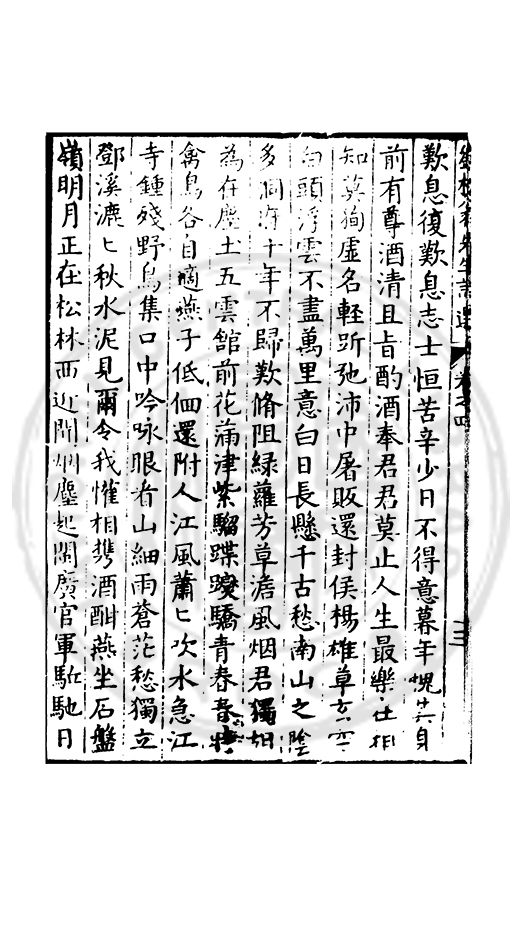 先生詩選 卷之四 三
歎息復歎息志士恒苦辛少日不得意暮年愧其身
前有尊酒清且旨酌酒奉君君莫止人生最樂在相
知莫徇虛名輕斫弛沛中屠販還封侯楊雄草玄空
白頭浮雲不盡萬里意白日長懸千古愁南山之陰
多洞府十年不歸歎脩阻綠蘿芳草澹風烟君獨胡
為在塵土五雲館前花滿津紫騮蹀躞驕青春
禽鳥各自適燕子低佪還附人江風蕭〻吹水急江
寺鍾殘野鳥集口中吟咏眼看山細雨蒼茫愁獨立
鄧溪漉〻秋水泥見爾令我懽相携酒酣燕坐石盤
嶺明月正在松林西近聞烟塵起閩廣官軍馳日